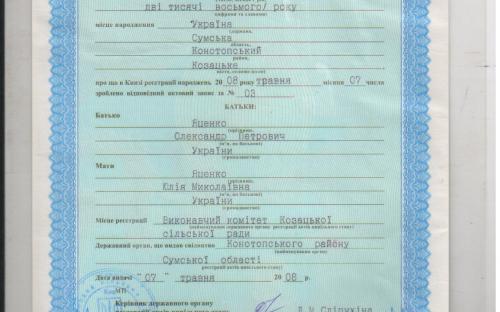 дві тисячі восьмого/ року
(цифрами та словами)
місце народження Україна
(держава,
Сумська
область,
Конотопський
район,
Козацьке
місто, селище (село)
про що в Книзі реєстрації народжень 2008 року травня місяця 07 числа
зроблено відповідний актовий запис за № 03
БАТЬКИ:
Батько Яценко
(прізвище,
Олександр Петрович
ім'я, по батькові)
України
(громадянство)
Мати
Яценко
(прізвище,
Юлія Миколаївна
ім'я, по батькові)
України
(громадянство)
Місце реєстрації Виконавчий комітет Козацької
(найменування державного органу реєстрації актів цивільного стану)
сільської ради
Державний орган, що видав свідоцтво Конотопського району
(найменування органу
Сумської області
реєстрації актів цивільного стану)
Дата видачі "07" травня 2008 р.
МП
Керівник державного органу
реєстрації актів цивільного стану